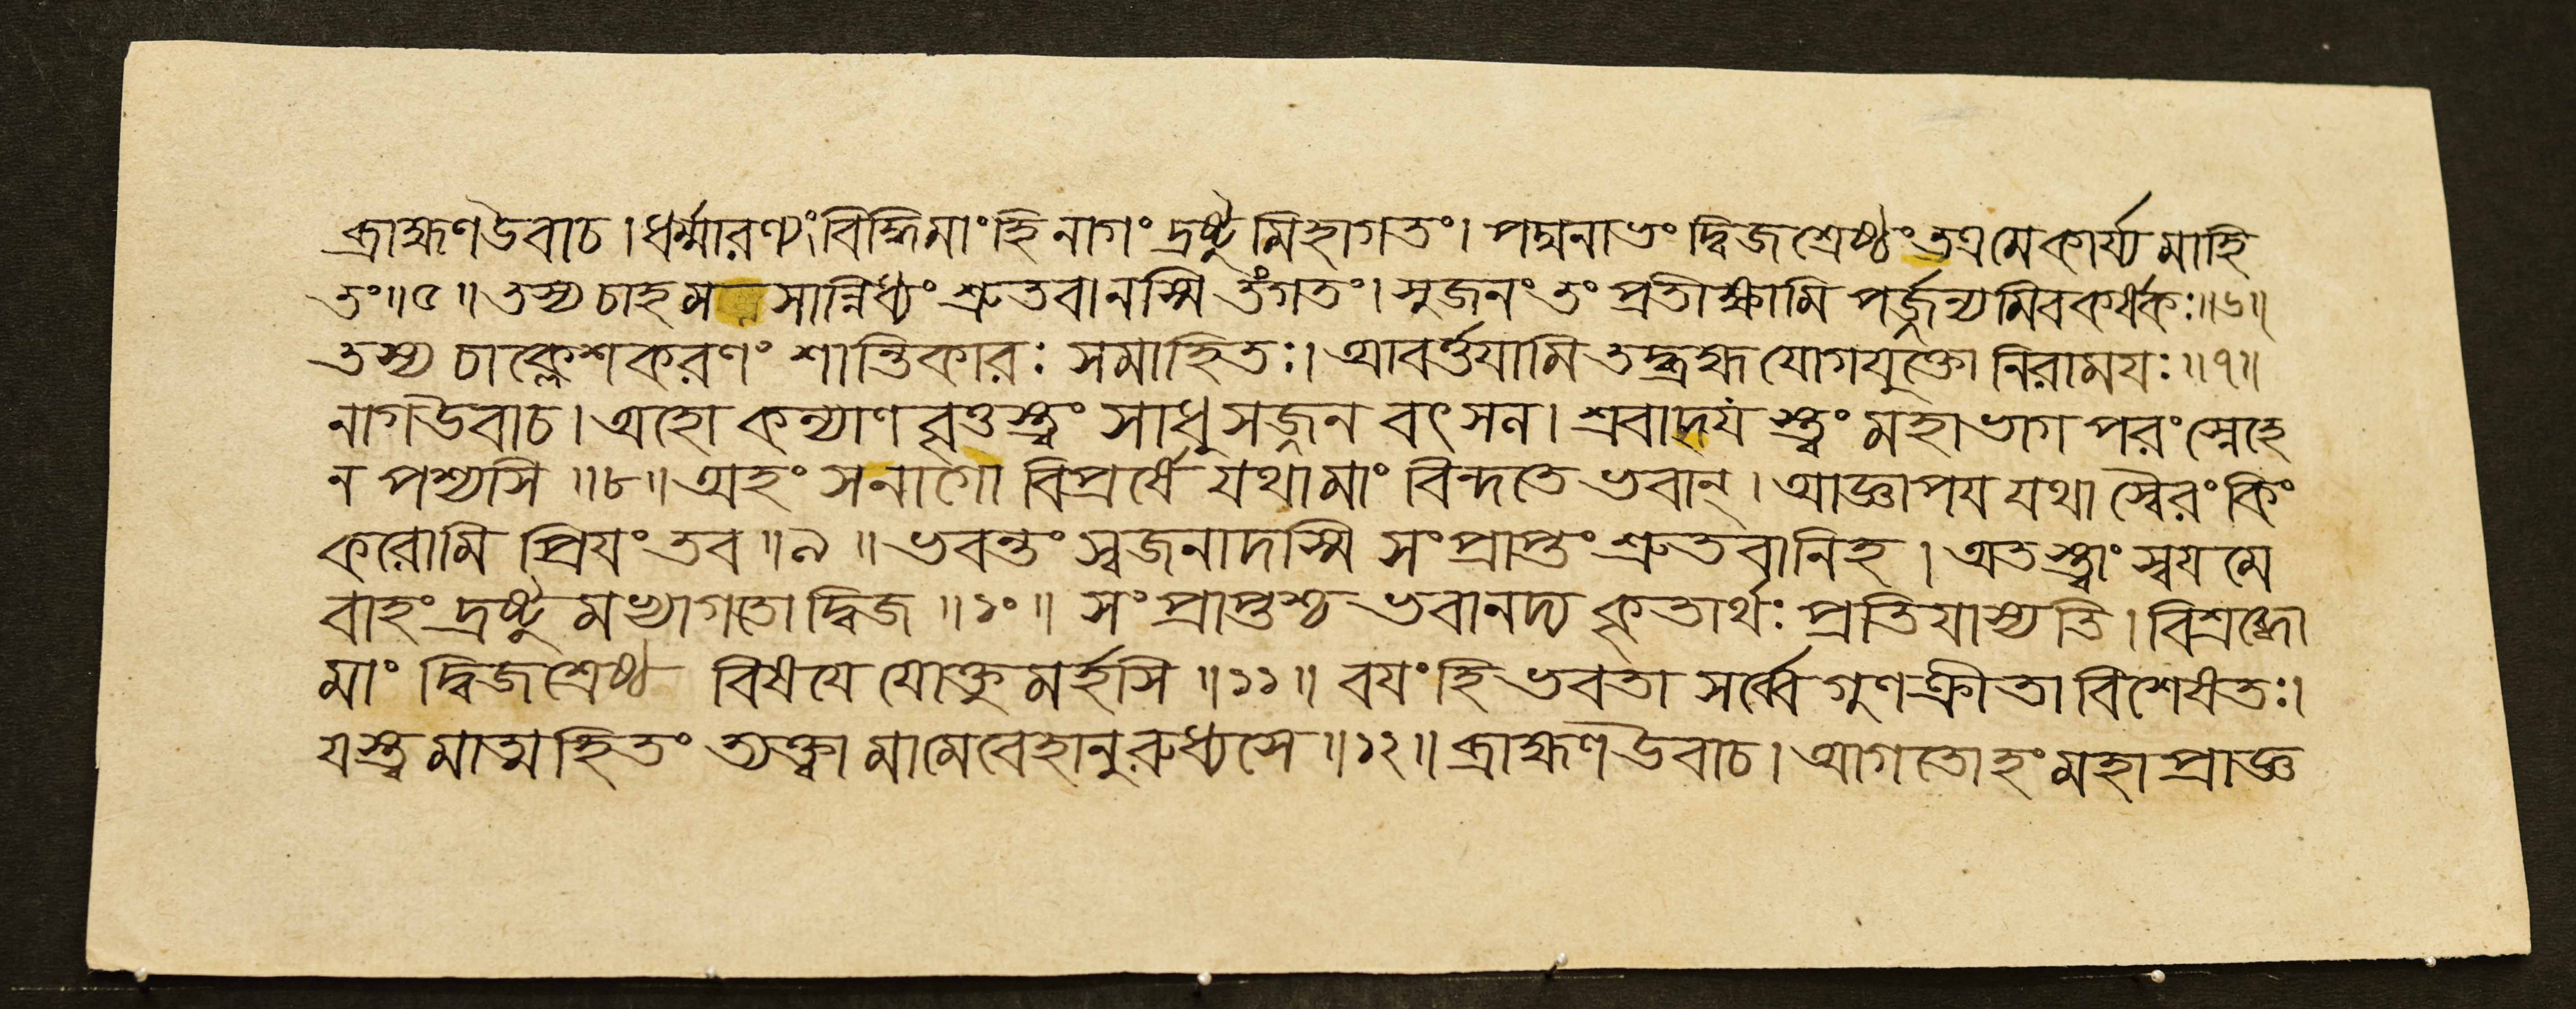 ব্রাহ্মণউবাচ । ধর্ম্মারণ্যং বিদ্ধিমাং হি নাগং দ্রষ্টুমিহাগতং । পদ্মনাভং দ্বিজশ্রেষ্ঠং তত্র মে কার্য্য মাহি
তং ॥৫॥ তস্য চাহম সান্নিধ্যং শ্রুতবানস্মি তংগতং । সুজনং তং প্রতীক্ষামি পর্জ্জন্যমিবকর্ষকঃ ॥৬॥
তস্য চাক্লেশকরণং শান্তিকারঃ সমাহিতঃ । আবর্ত্তযামি তদ্ব্রহ্ম যোগযুক্তো নিরামযঃ ॥৭॥
নাগউবাচ । অহো কল্যাণ বৃত্তস্ত্বং সাধু সজ্জন বৎসল । শ্রবাদ্যং স্ত্বং মহাভাগ পরং স্নেহে
ন পশ্যসি ॥৮॥ অহং স নাগো বিপ্রর্ষে যথা মাং বিন্দতে ভবান্ । আজ্ঞাপয যথা স্বৈরং কিং
করোমি প্রিযং তব ॥৯॥ ভবন্তং স্বজনাদস্মি সংপ্রাপ্তং শ্রুতবানিহ । অতস্ত্বাং স্বযমে
বাহং দ্রষ্টুমভ্যাগতো দ্বিজ ॥১০॥ সংপ্রাপ্তশ্চ ভবানদ্য কৃতার্থঃ প্রতিযাস্যতি । বিশ্রব্ধো
মাং দ্বিজশ্রেষ্ঠ বিষযে যোক্তুমর্হসি ॥১১॥ বযং হি ভবতা সর্ব্বে গুণক্রীতা বিশেষতঃ ।
যস্ত্বমাত্মহিতং ত্যক্ত্বা মামেবেহানুরুধ্যসে ॥১২॥ ব্রাহ্মণউবাচ । আগতোহং মহাপ্রাজ্ঞ